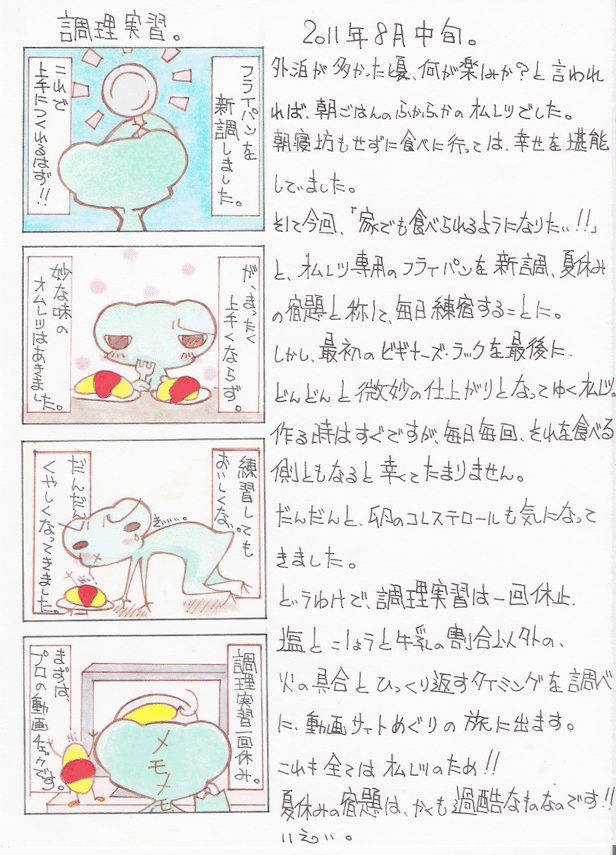 調理実習。
フライパンを
新調しました。
これで
上手につくれるはず!!
が、まったく
上手くならず。
妙な味の
オムレツはあきました。
練習しても
おいしくない。
ぎぃぃぃ。
だんだん
くやしくなってきました。
Hi!
調理実習一回休み。
まずは、
プロの動画チェックです。
Hi
メモメモ
2011年8月中旬。
外泊が多かった頃、何が楽しみか?と言われ
れば、朝ごはんのふからかのオムレツでした。
朝寝坊もせずに食べに行っては、幸せを堪能
していました。
そして今回、「家でも食べられるようになりたい!!」
と、オムレツ専用のフライパンを新調、夏休み
の宿題と称して、毎日練宿することに。
しかし、最初のビギナーズ・ラックを最後に、
どんどんと微妙の仕上がりとなってゆくオムレツ。
作る時はすぐですが、毎日毎回、それを食べる
側ともなると辛くてたまりません。
だんだんと、卵のコレステロールも気になって
きました。
というわけで、調理実習は一回休止、
塩とこしょうと牛乳の割合以外の、
火の具合とひっくり返すタイミングを調べ
に、動画サイトめぐりの旅に出ます。
これも全てはオムレツのため!!
夏休みの宿題は、かくも過酷なものなのです!!
いえぃ。